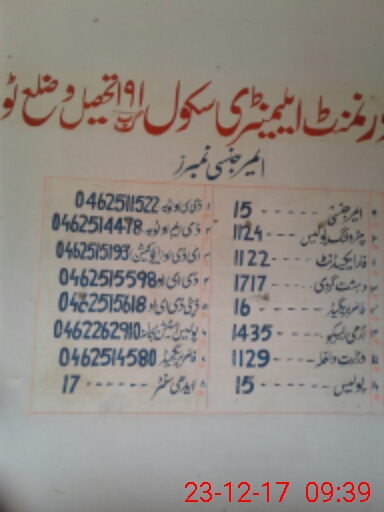 گورنمنٹ ایلیمنٹری سکول ۱۹۱ تحصیل و ضلع ٹو
ایمرجنسی نمبرز
ایمرجنسی ------ 15
1124 -----
1122 ----
دہشت گردی ---- 1717
فائر بریگیڈ ---- 16
آرمی ریسکیو ---- 1435
وزارت داخلہ ---- 1129
پولیس ------ 15
ڈی سی او ٹوبہ 0462511522
ڈی ایم او ٹوبہ 0462514478
ای ڈی او ایجوکیشن 0462515193
ڈی ای او 0462515598
ڈپٹی ڈی ای او 0462515618
پولیس اسٹیشن 0462262910
فائر بریگیڈ 0462514580
ایدھی سنٹر ------ 17
23-12-17 09:39